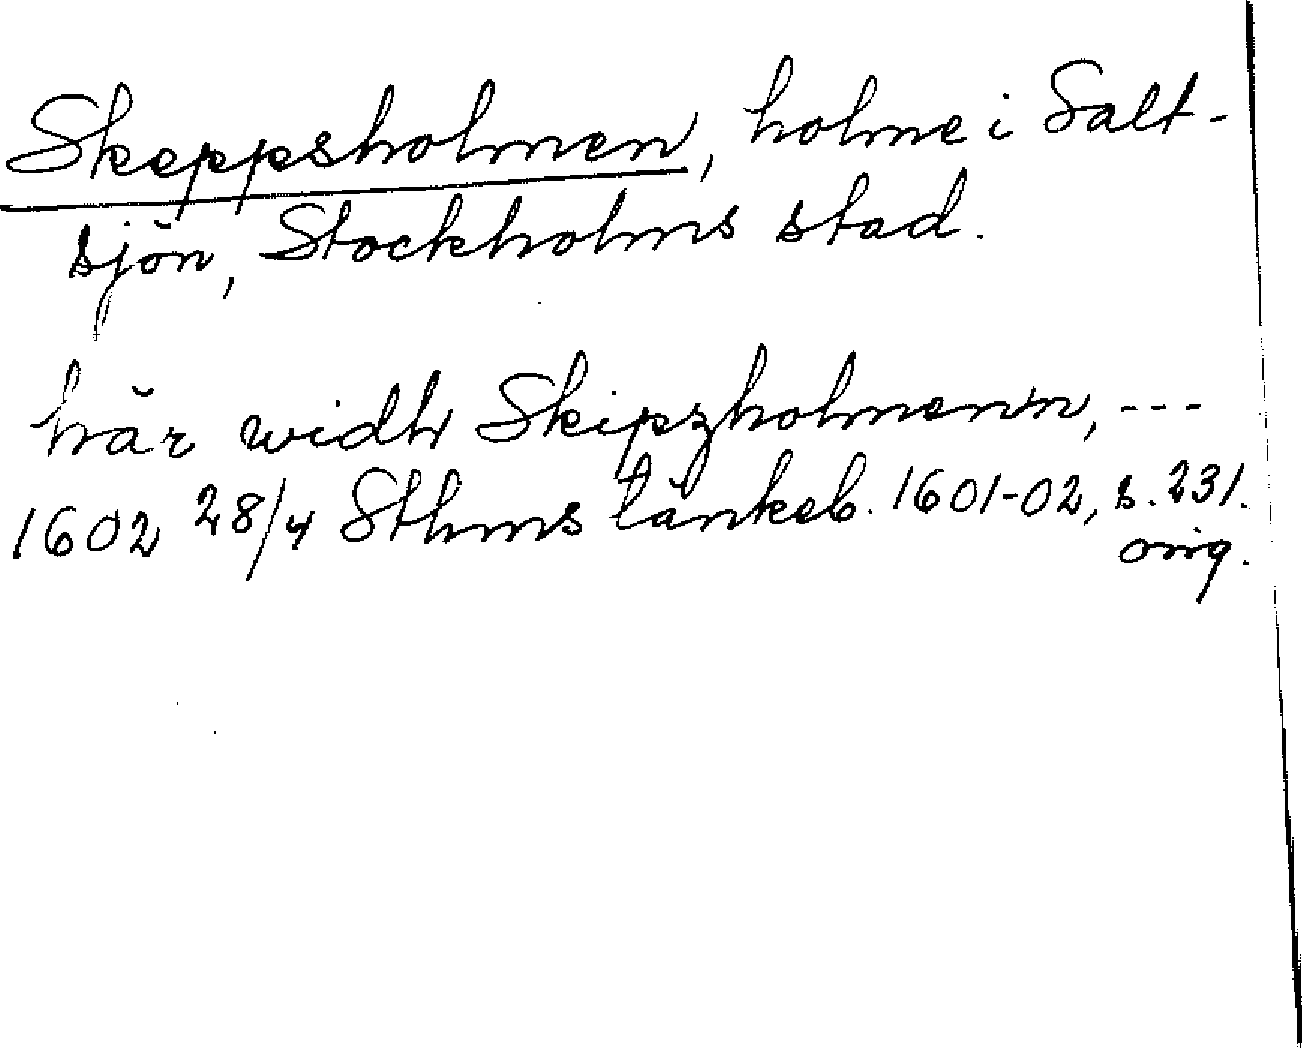 Skeppsholmen, holme i Salt-
sjön, Stockholms stad.
här widh Skipzholmenn, ---
1602 28/4 Sthms tänkeb. 1601-02, s. 231.
orig.